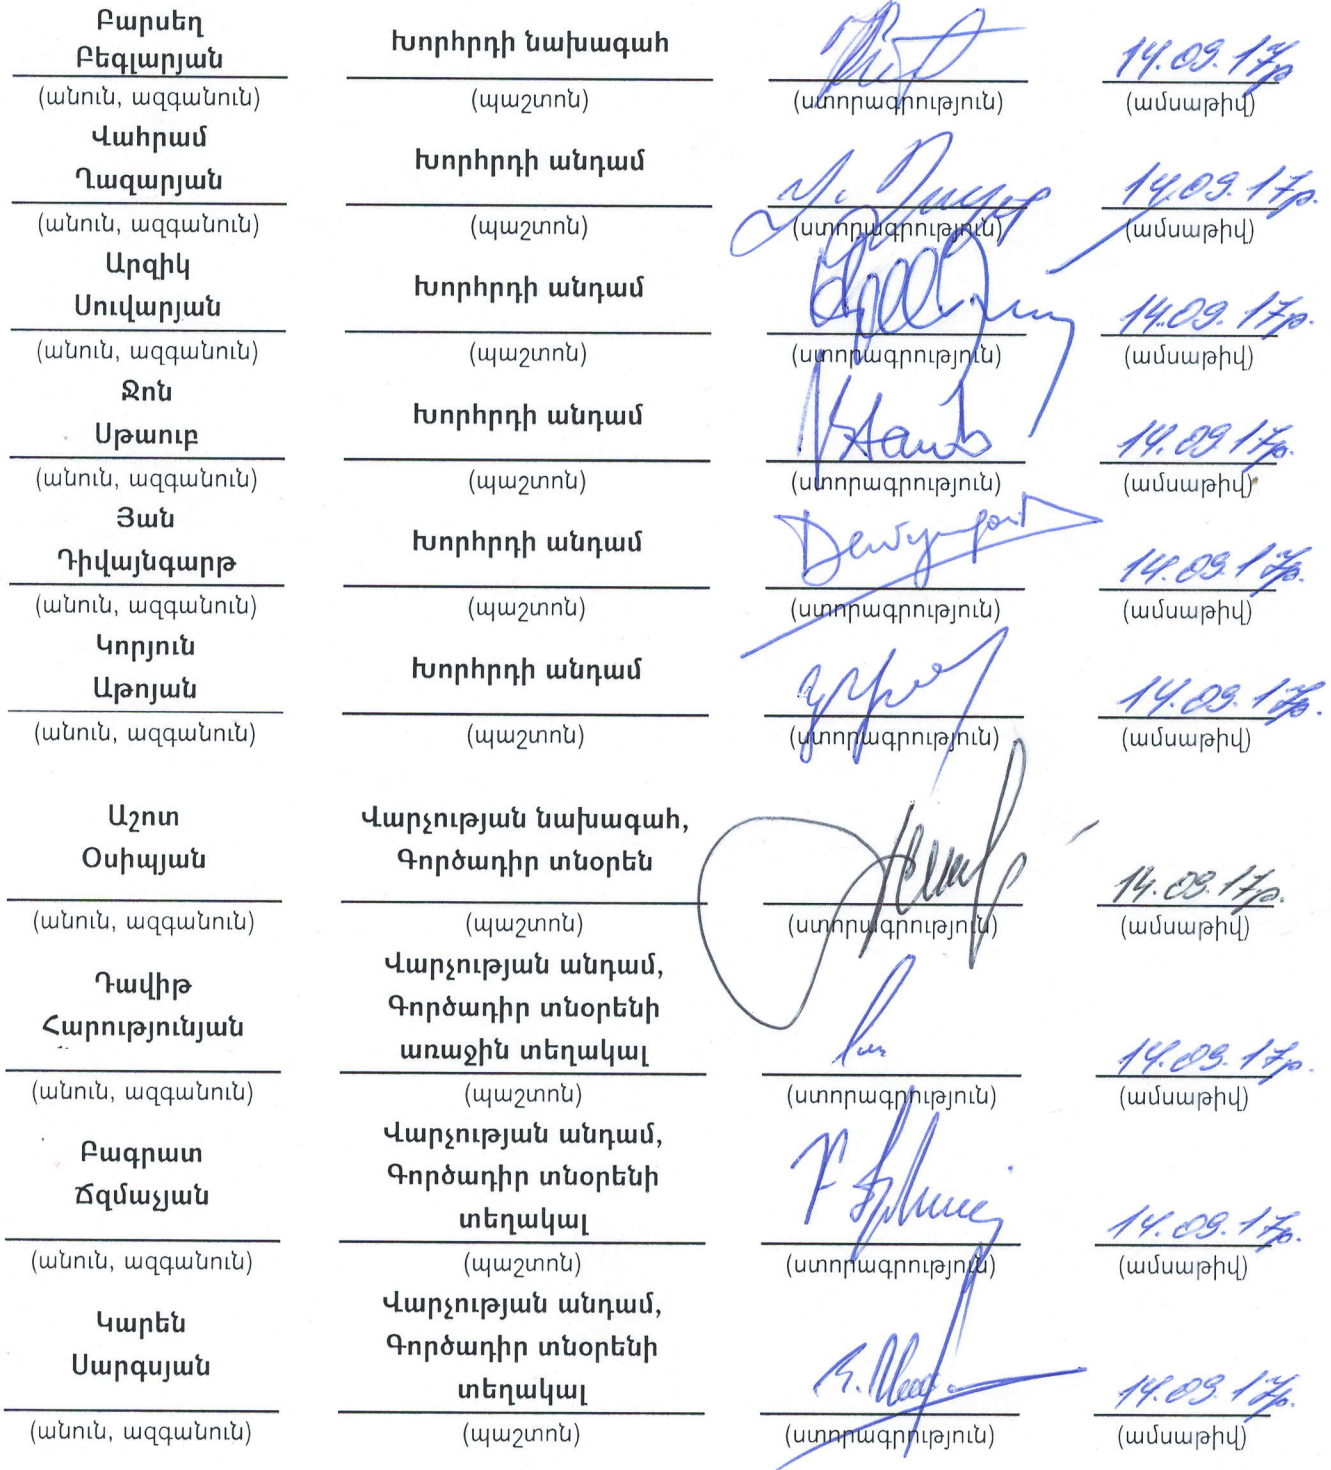 Բարսեղ
Բեգլարյան
Խորհրդի նախագահ
14.09.17թ
(անուն, ազգանուն) (պաշտոն) (ստորագրություն) (ամսաթիվ)
Վահրամ
Ղազարյան
Խորհրդի անդամ
14.09.17թ.
(անուն, ազգանուն) (պաշտոն) (ստորագրություն) (ամսաթիվ)
Արզիկ
Սուվարյան
Խորհրդի անդամ
14.09.17թ.
(անուն, ազգանուն) (պաշտոն) (ստորագրություն) (ամսաթիվ)
Ջոն
Սթաուբ
Խորհրդի անդամ
14.09.17թ.
(անուն, ազգանուն) (պաշտոն) (ստորագրություն) (ամսաթիվ)
Յան
Դիվայնգարթ
Խորհրդի անդամ
14.09.17թ.
(անուն, ազգանուն) (պաշտոն) (ստորագրություն) (ամսաթիվ)
Կորյուն
Աթոյան
Խորհրդի անդամ
14.09.17թ.
(անուն, ազգանուն) (պաշտոն) (ստորագրություն) (ամսաթիվ)
Աշոտ
Օսիպյան
Վարչության նախագահ,
Գործադիր տնօրեն
14.09.17թ.
(անուն, ազգանուն) (պաշտոն) (ստորագրություն) (ամսաթիվ)
Դավիթ
Հարությունյան
Վարչության անդամ,
Գործադիր տնօրենի
առաջին տեղակալ
14.09.17թ.
(անուն, ազգանուն) (պաշտոն) (ստորագրություն) (ամսաթիվ)
Բագրատ
Ճզմաչյան
Վարչության անդամ,
Գործադիր տնօրենի
տեղակալ
14.09.17թ.
(անուն, ազգանուն) (պաշտոն) (ստորագրություն) (ամսաթիվ)
Կարեն
Սարգսյան
Վարչության անդամ,
Գործադիր տնօրենի
տեղակալ
14.09.17թ.
(անուն, ազգանուն) (պաշտոն) (ստորագրություն) (ամսաթիվ)